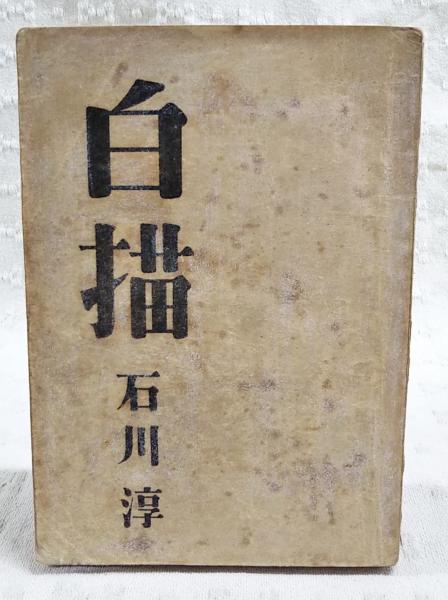 白描
石川淳